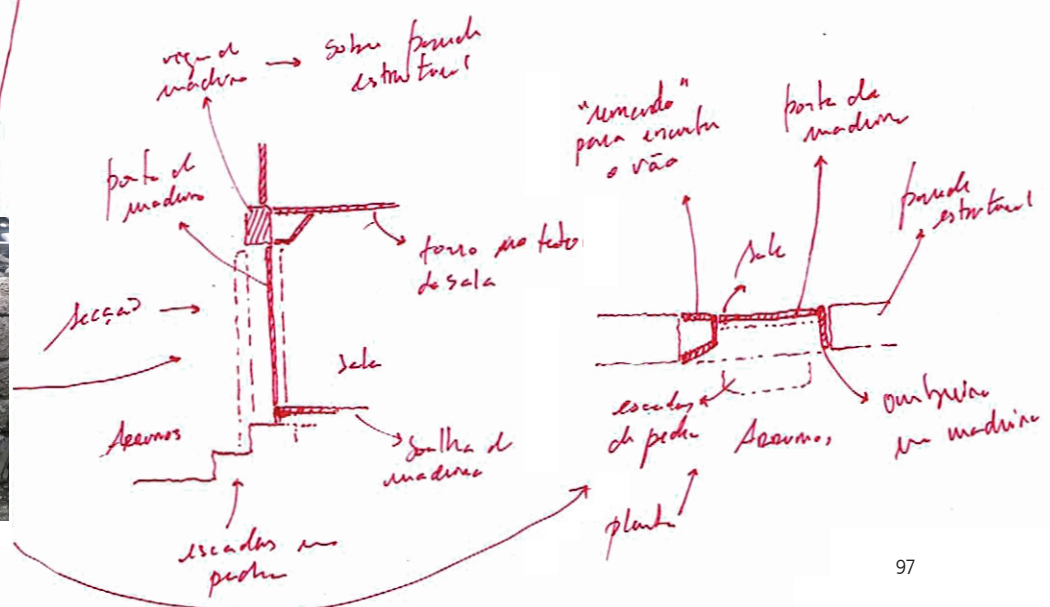 viga de
madeira → sobre parede
estrutural
porta de
madeira
forro no teto
da sala
secção →
sala
Arrumos
soalho de
madeira
escadas em
pedra
"remendo"
para encurtar
o vão
porta de
madeira
parede
estrutural
sala
escadas
de pedra
Arrumos
ombreira
em madeira
planta
97